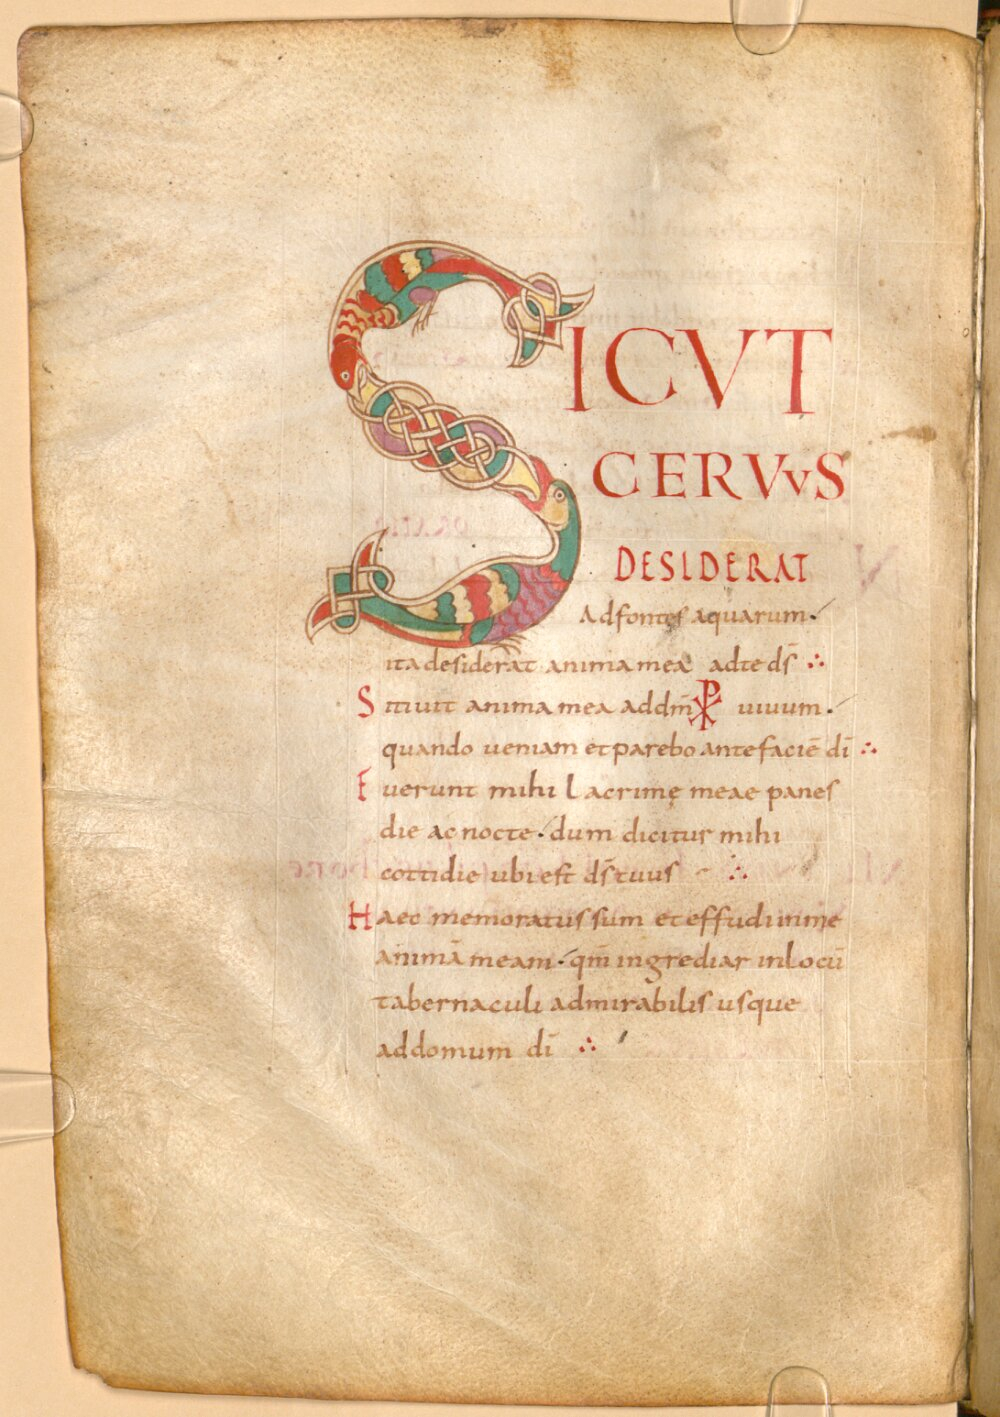 SICVT
CERVVS
DESIDERAT
Ad fontes aquarum
ita desiderat anima mea ad te ds̄ ∴
Sitiuit anima mea ad dm̄ ☧ uiuum.
quando ueniam et parebo ante faciē dī ∴
Fuerunt mihi Lacrimę meae panes
die ac nocte. dum dicitur mihi
cottidie ubi est ds̄ tuus ∴
Haec memoratus sum et effudi inme
animā meam. qm̄ ingrediar in locū
tabernaculi admirabilis usque
ad domum dī ∴